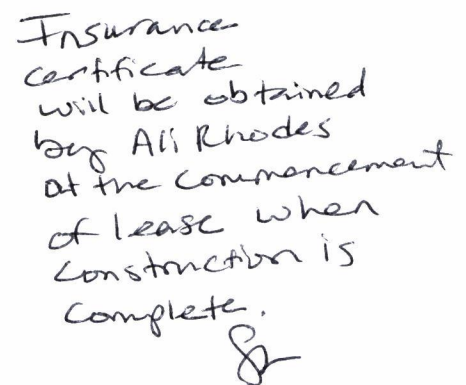 Insurance
certificate
will be obtained
by Ali Rhodes
at the commencement
of lease when
construction is
complete.